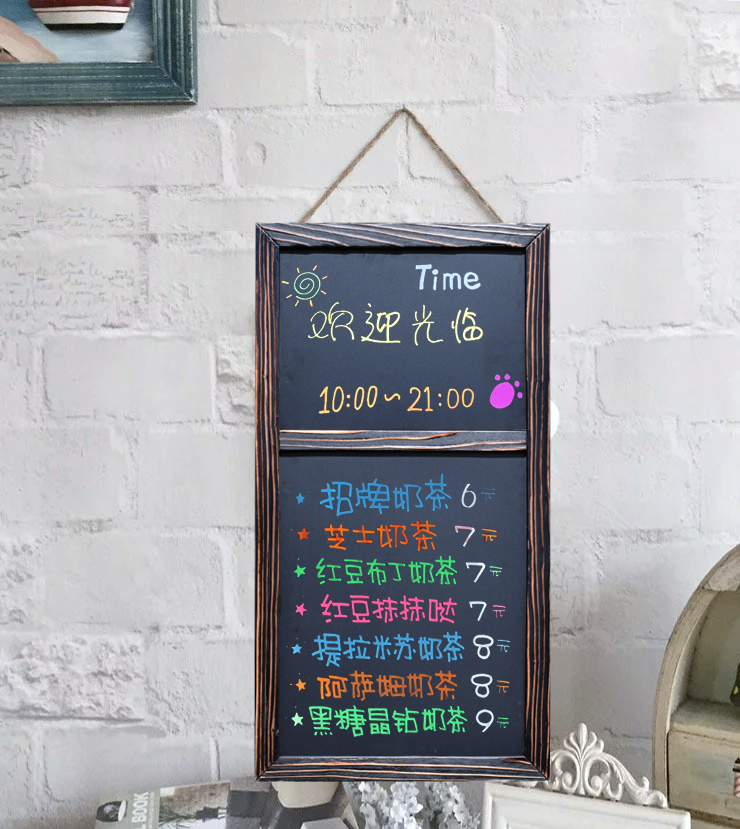 Time
欢迎光临
10:00~21:00
招牌奶茶 6元
芝士奶茶 7元
红豆布丁奶茶 7元
红豆抹抹哒 7元
提拉米苏奶茶 8元
阿萨姆奶茶 8元
黑糖晶钻奶茶 9元
BOOK